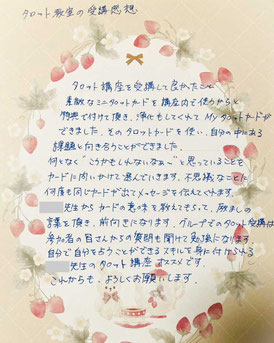 タロット教室の受講感想
タロット講座を受講して良かったこと
素敵なミニタロットカードを講座内で使うからと
特典で付けて頂き、浄化もしてくれて Myタロットカードが
できました。そのタロットカードを使い、自分の中にある
課題と向き合うことができました。
何となく"こうかもしんないなぁ～"と思っていることを
カードに問いかけて選んでいきます。不思議なことに
何度も同じカードが出てメッセージを伝えてくれます。
先生からカードの意味を教えてもらって、励ましの
言葉を頂き、前向きになります。グループでのタロット受講は
参加者の皆さんからの質問も聞けて勉強になります
自分で自分を占うことができるスキルを身に付けられる
先生のタロット講座おススメです。
これからも、よろしくお願いします。